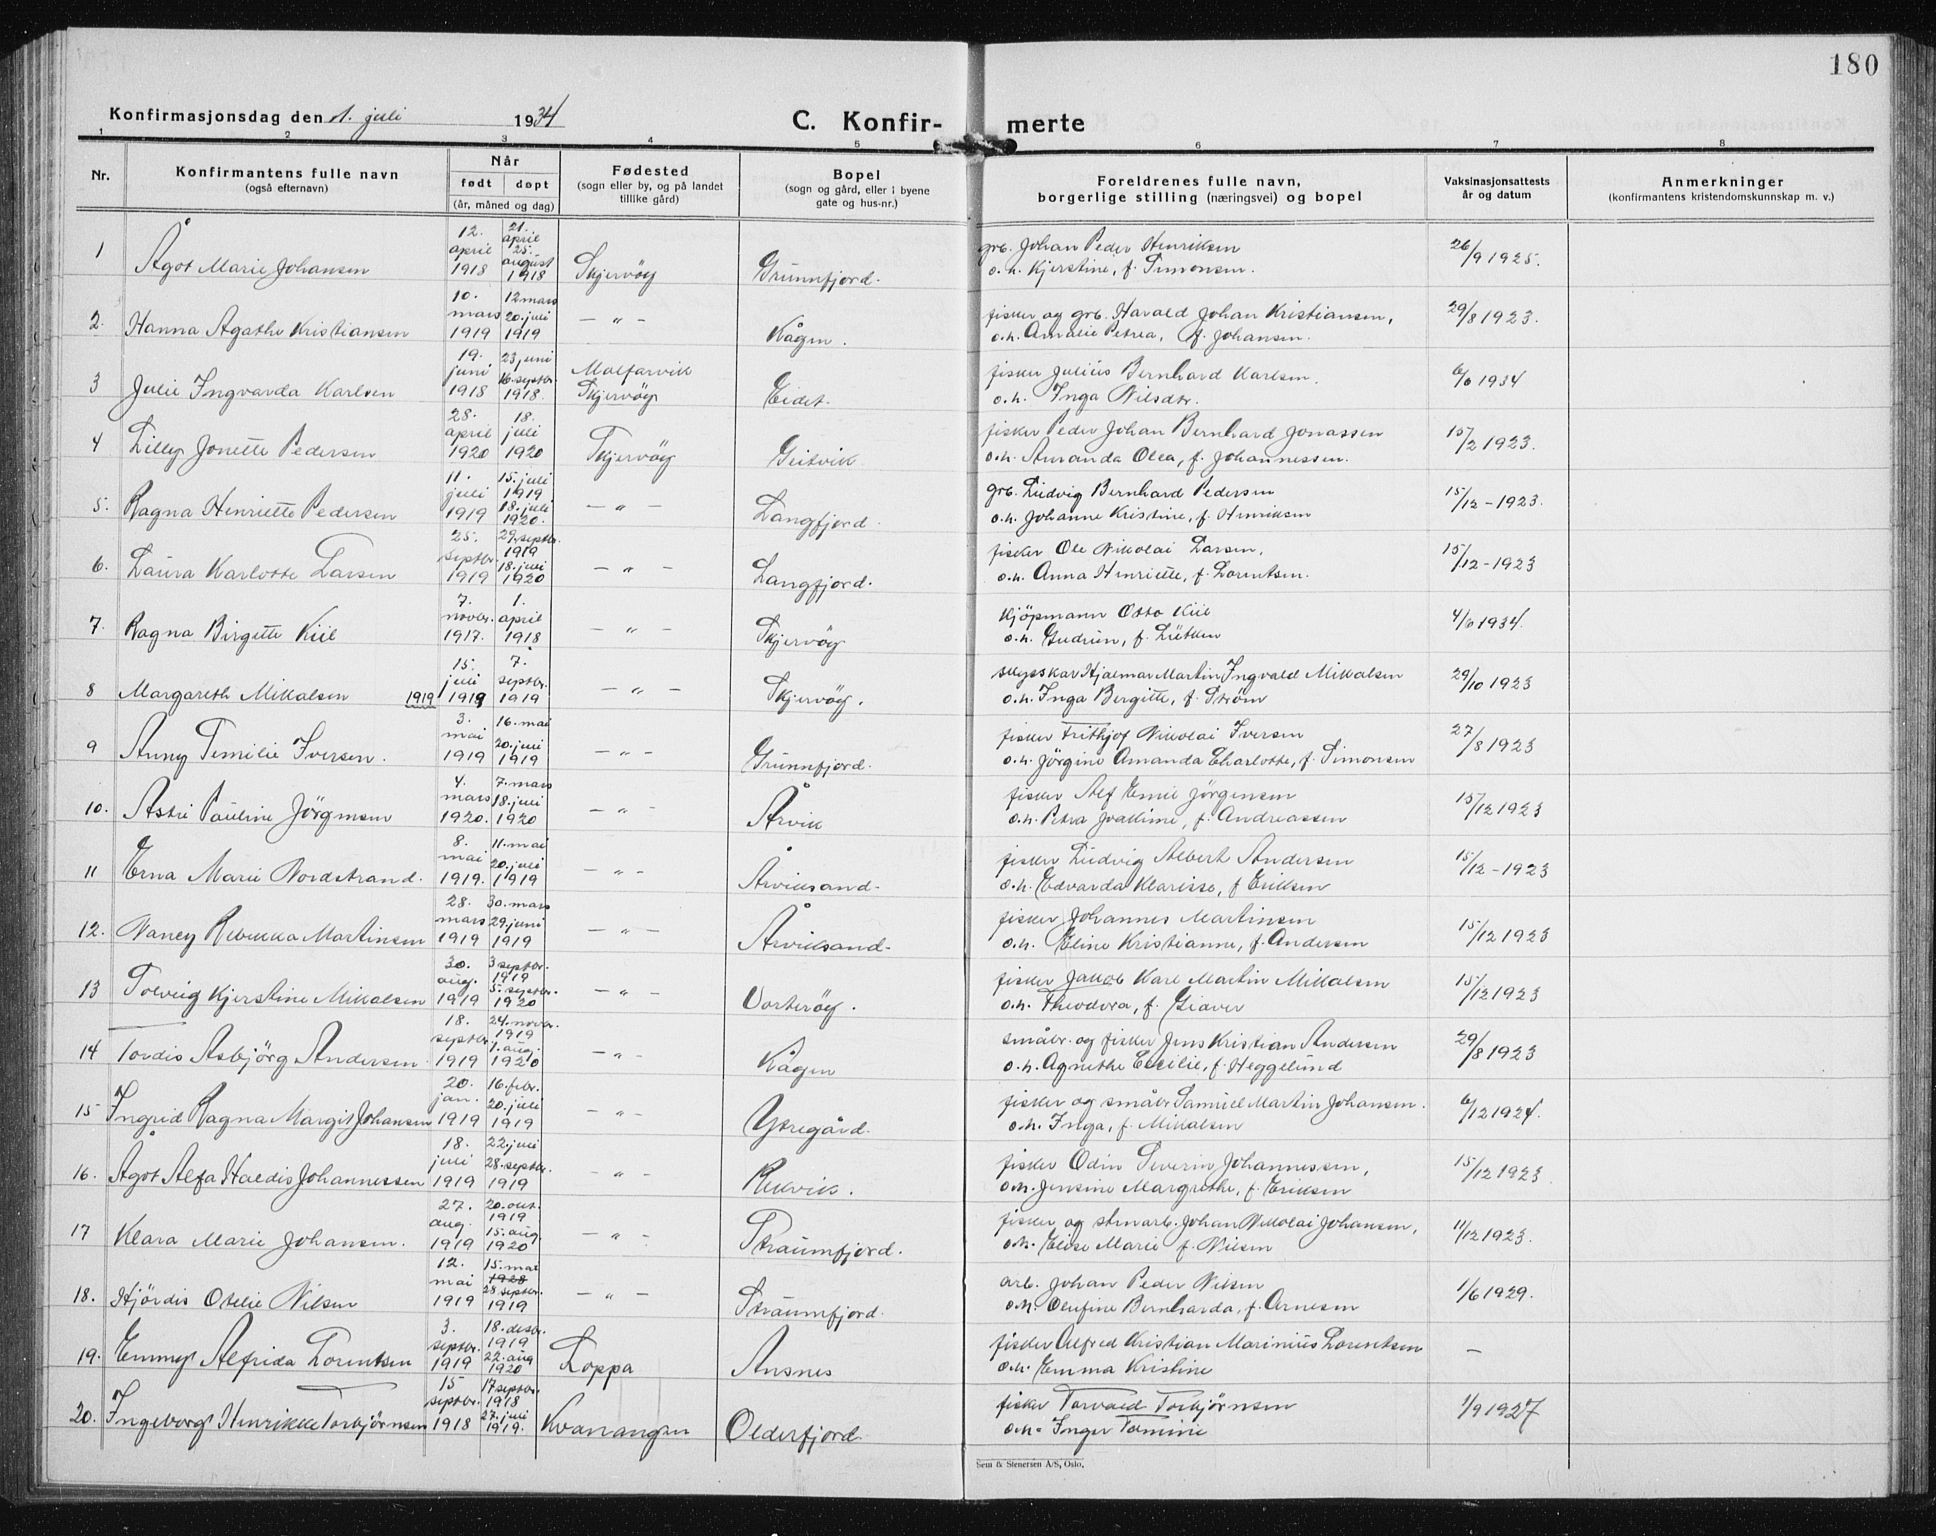 180
Konfirmasjonsdag den 1. juli 1934
C. Konfirmerte
1 2 3 4 5 6 7 8
Nr. Konfirmantens fulle navn (også efternavn) Når født døpt (år, måned og dag) Fødested (sogn eller by, og på landet tillike gård) Bopel (sogn og gård, eller i byene gate og hus-nr.) Foreldrenes fulle navn, borgerlige stilling (næringsvei) og bopel Vaksinasjonsattests år og datum Anmerkninger (konfirmantens kristendomskunnskap m. v.)
1 Ågot Marie Johansen 12. april 1918 21. april 25. august 1918 Skjervöy Grunnfjord. grb. Johan Peder Henriksen o.h. Kjerstine, f. Simonsen. 26/9 1925.
2. Hanna Agathe Kristiansen 10. mars 1919 12 mars 20. juli 1919 — " — Kågen. fisker og grb. Harald Johan Kristiansen, o.h. Amalie Petrea, f. Johansen. 29/8 1923.
3 Julie Ingvarda Karlsen 19. juni 1918 23. juni 16. septbr. 1918. Malfarvik Skjervöy Eidet. fisker Julius Bernhard Karlsen. o.h. Inga Nilsdtr. 6/6 1934
4 Lilly Jonette Pedersen 28. april 1920 18. juli 1920 Skjervöy Geitvik fisker Peder Johan Bernhard Jonassen o.h. Amanda Olea, f. Johannessen. 15/2 1923.
5. Ragna Henriette Pedersen 11. juli 1919 15. juli 1919 18. juli 1920. — " — Langfjord. grb. Ludvig Bernhard Pedersen o.h. Johanne Kristine, f. Henriksen 15/12 - 1923.
6. Laura Karlotte Larsen 25. septbr. 1919 29. septbr. 1919 18. juli 1920 — " — Langfjord. fisker Ole Nikolai Larsen, o.h. Anna Henriette, f. Lorentsen. 15/12 - 1923
7. Ragna Birgitte Kiil 7. novbr. 1917. 1. april 1918 — " — Skjervöy kjöpmann Otto Kiil o.h. Gudrun, f. Lütken 4/6 1934.
8 Margareth Mikalsen 1919 15. juli 1919 7. septbr. 1919 — " — Skjervöy. skysskar Hjalmar Martin Ingvald Mikalsen o.h. Inga Bergitte, f. Ström 29/10 1923
9 Anny Temilie Iversen. 3. mai 1919 16. mai 20. juli 1919 — " — Grunnfjord. fisker Frithjof Nikolai Iversen o.h. Jörgine Amanda Charlotte, f. Simonsen 27/8 1923
10. Astri Pauline Jörgensen 4. mars 1920. 7. mars 18. juli 1920 — " — Årvik fisker Alf Emil Jörgensen o.h. Petra Joakime, f. Andreassen 15/12 1923
11 Erna Marie Nordstrand. 8. mai 1919. 11. mai 20. juli 1919 — " — Årviksand. fisker Ludvig Albert Andersen o.h. Edvarda Klarisse, f Eriksen 15/12 - 1923
12. Nancy Rebekka Martinsen 28. mars 1919 30. mars 29. juni 1919 — " — Årviksand. fisker Johannes Martinsen o.h. Eline Kristianne, f. Andersen 15/12 1923
13 Solveig Kjerstine Mikalsen 30. aug. 1919 3 septbr. 1919 5. septbr. 1920 — " — Vorteröy. fisker Jakob Karl Martin Mikalsen o.h. Theodora, f. Giæver 15/12 1923
14 Tordis Asbjörg Andersen 18. septbr. 1919 24. novbr. 1919 1. aug. 1920 — " — Kågen småbr. og fisker Jens Kristian Andersen o.h. Agnethe Cecilie, f. Heggelund 29/8 1923
15 Ingrid Ragna Margit Johansen 20. jan. 1919 16. febr. 20. juli 1919 — " — Ytregård. fisker og småbr. Samuel Martin Johansen. o.h. Inga, f. Mikalsen 6/12 1924.
16. Ågot Alfa Haldis Johannessen 18. juli 1919 22. juli 28. septbr. 1919 — " — Rekvik. fisker Odin Severin Johannessen, o.h. Jensine Margrethe, f. Eriksen 15/12 1923
17 Klara Marie Johansen. 27. aug. 1919 20. okt. 1919 15. aug. 1920 — " — Straumfjord. fisker og stenarb. Johan Nikolai Johansen, o.h. Elise Marie f. Nilsen 11/12 1923.
18. Hjördis Otelie Nilsen 12. mai 1919 15. mai 1928 28 septbr. 1919 — " — Straumfjord. arb. Johan Peder Nilsen o.h. Olufine Bernharda, f. Arnesen 1/6 1929.
19. Emmy Alfrida Lorentsen 3. septbr. 1919 18. desbr. 1919 22. aug 1920 Loppa Ansnes fisker Alfred Kristian Marinius Lorentsen o.h. Emma Kristine —
20. Ingeborg Henrikke Torbjörnsen 15 septbr. 1918 17 septbr. 1918 27. juli 1919. Kvænangen Olderfjord. fisker Torvald Torbjörnsen o.h. Inger Tomine 1/9 1927
Sem & Stenersen A/S, Oslo.